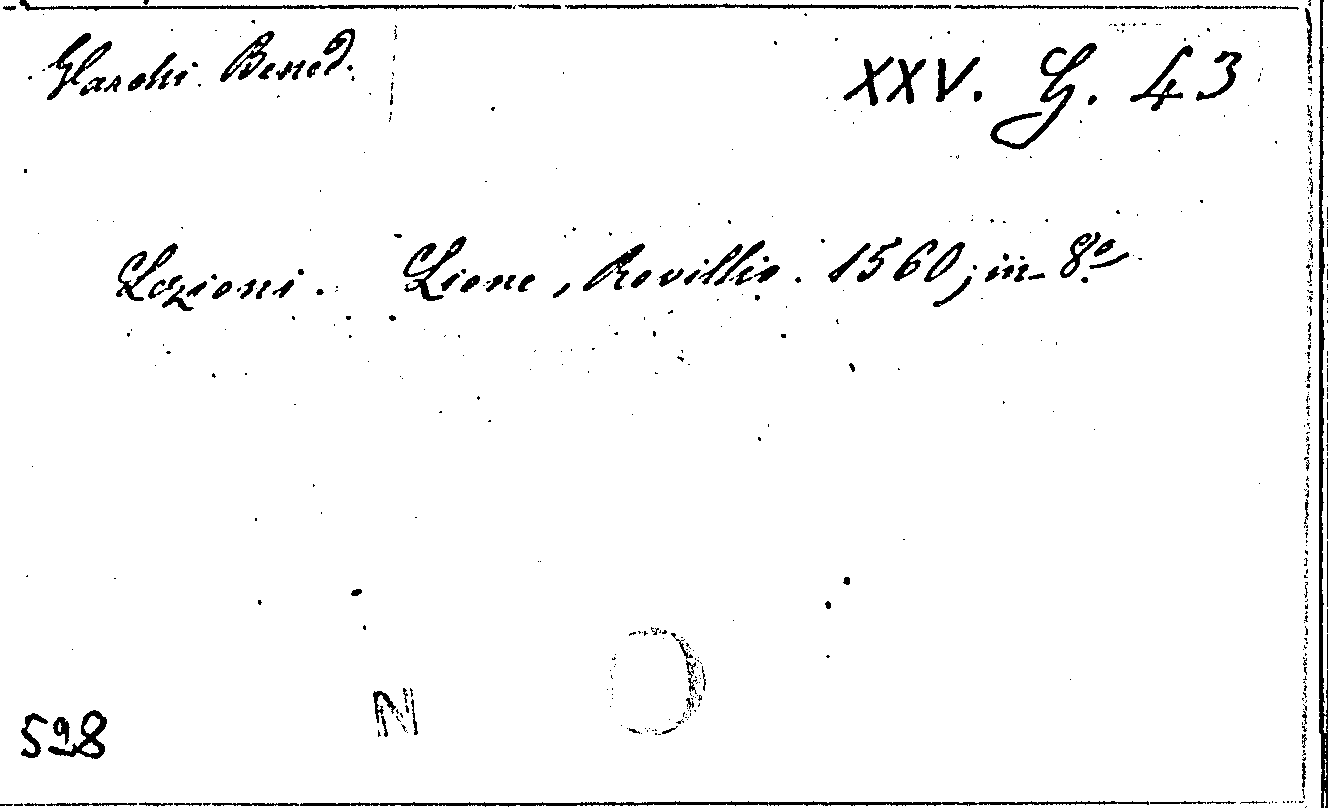 Varchi Bened. XXV. G. 43
Lezioni. Lione, Rovillio. 1560; in-8º
N
528